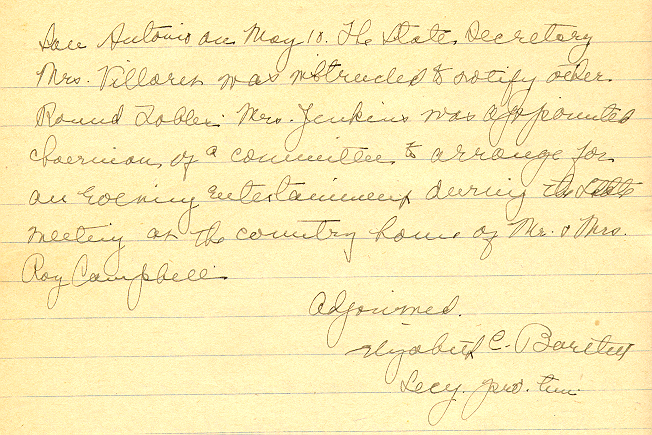 San Antonio on May 10. The State Secretary
Mrs. Villaret was instructed to notify other
Round Tables. Mrs. Jenkins was appointed
chairman of a committee to arrange for
an Evening Entertainment during the State
meeting at the country home of Mr. & Mrs.
Roy Campbell.
Adjourned.
Elizabeth C. Bartlett
Secy. pro. tem.